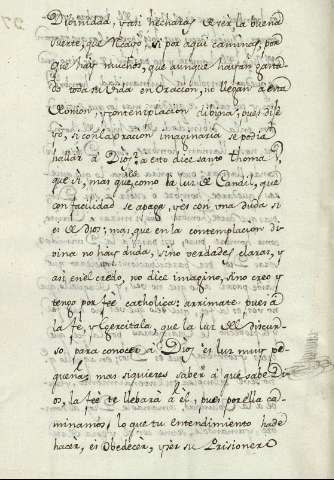 Divinidad, y asi hecharas à ver la buena
suerte, que llevas, si por aqui caminas, por
que hay muchos, que aunque hayan gasta-
do toda su vida en Oracion, no llegan à esta
Union, y contemplacion divina; pues dije
yo, si con la oracion imaginaria se podia
hallar à Dios? a esto dice santo Thomas,
que si, mas que como la luz de Candil, que
con facilidad se apaga, y es con una duda si
es de Dios; mas que en la contemplacion di-
vina no hay duda, sino verdades claras, y
asi en el credo, no dice imagino, sino creo y
tengo por feè catholica: arrimate pues à
la fè, y exercitala, que la luz del discur-
so para conocer à Dios es luz muy pe-
queña; mas si quieres saber à que sabe Di-
os, la feè te llebarà à èl, pues por ella ca-
minamos, lo que tu entendimiento ha de
hacer, es Obedecer, y ser su Prisionero